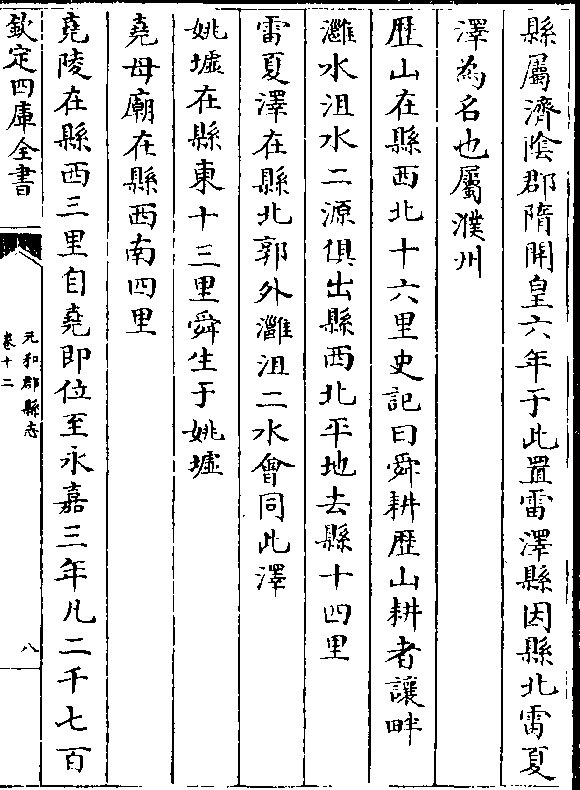 縣屬濟陰郡隋開皇六年于此置雷澤縣因縣北雷夏
澤為名也屬濮州
歴山在縣西北十六里史記曰舜耕歴山耕者讓畔
灉水沮水二源俱出縣西北平地去縣十四里
雷夏澤在縣北郭外灉沮二水會同此澤
姚墟在縣東十三里舜生于姚墟
堯母廟在縣西南四里
堯陵在縣西三里自堯即位至永嘉三年凡二千七百
欽定四庫全書
元和郡縣志
卷十二
八